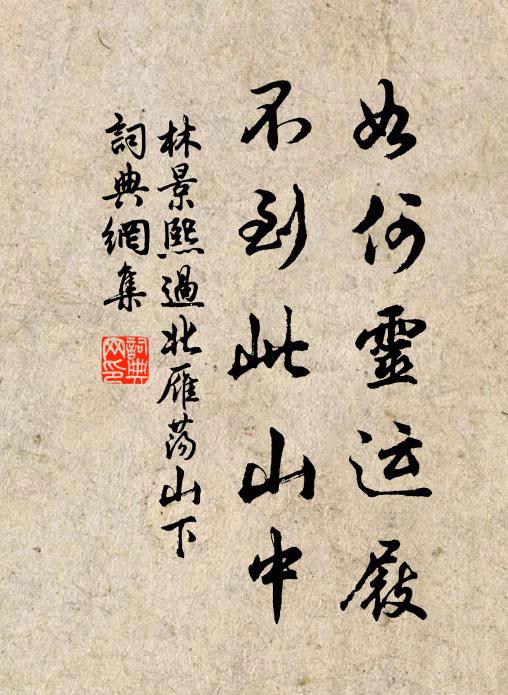 如何靈运屐
不到此山中
林景熙過北雁荡山下
詞典網集
詞典網印